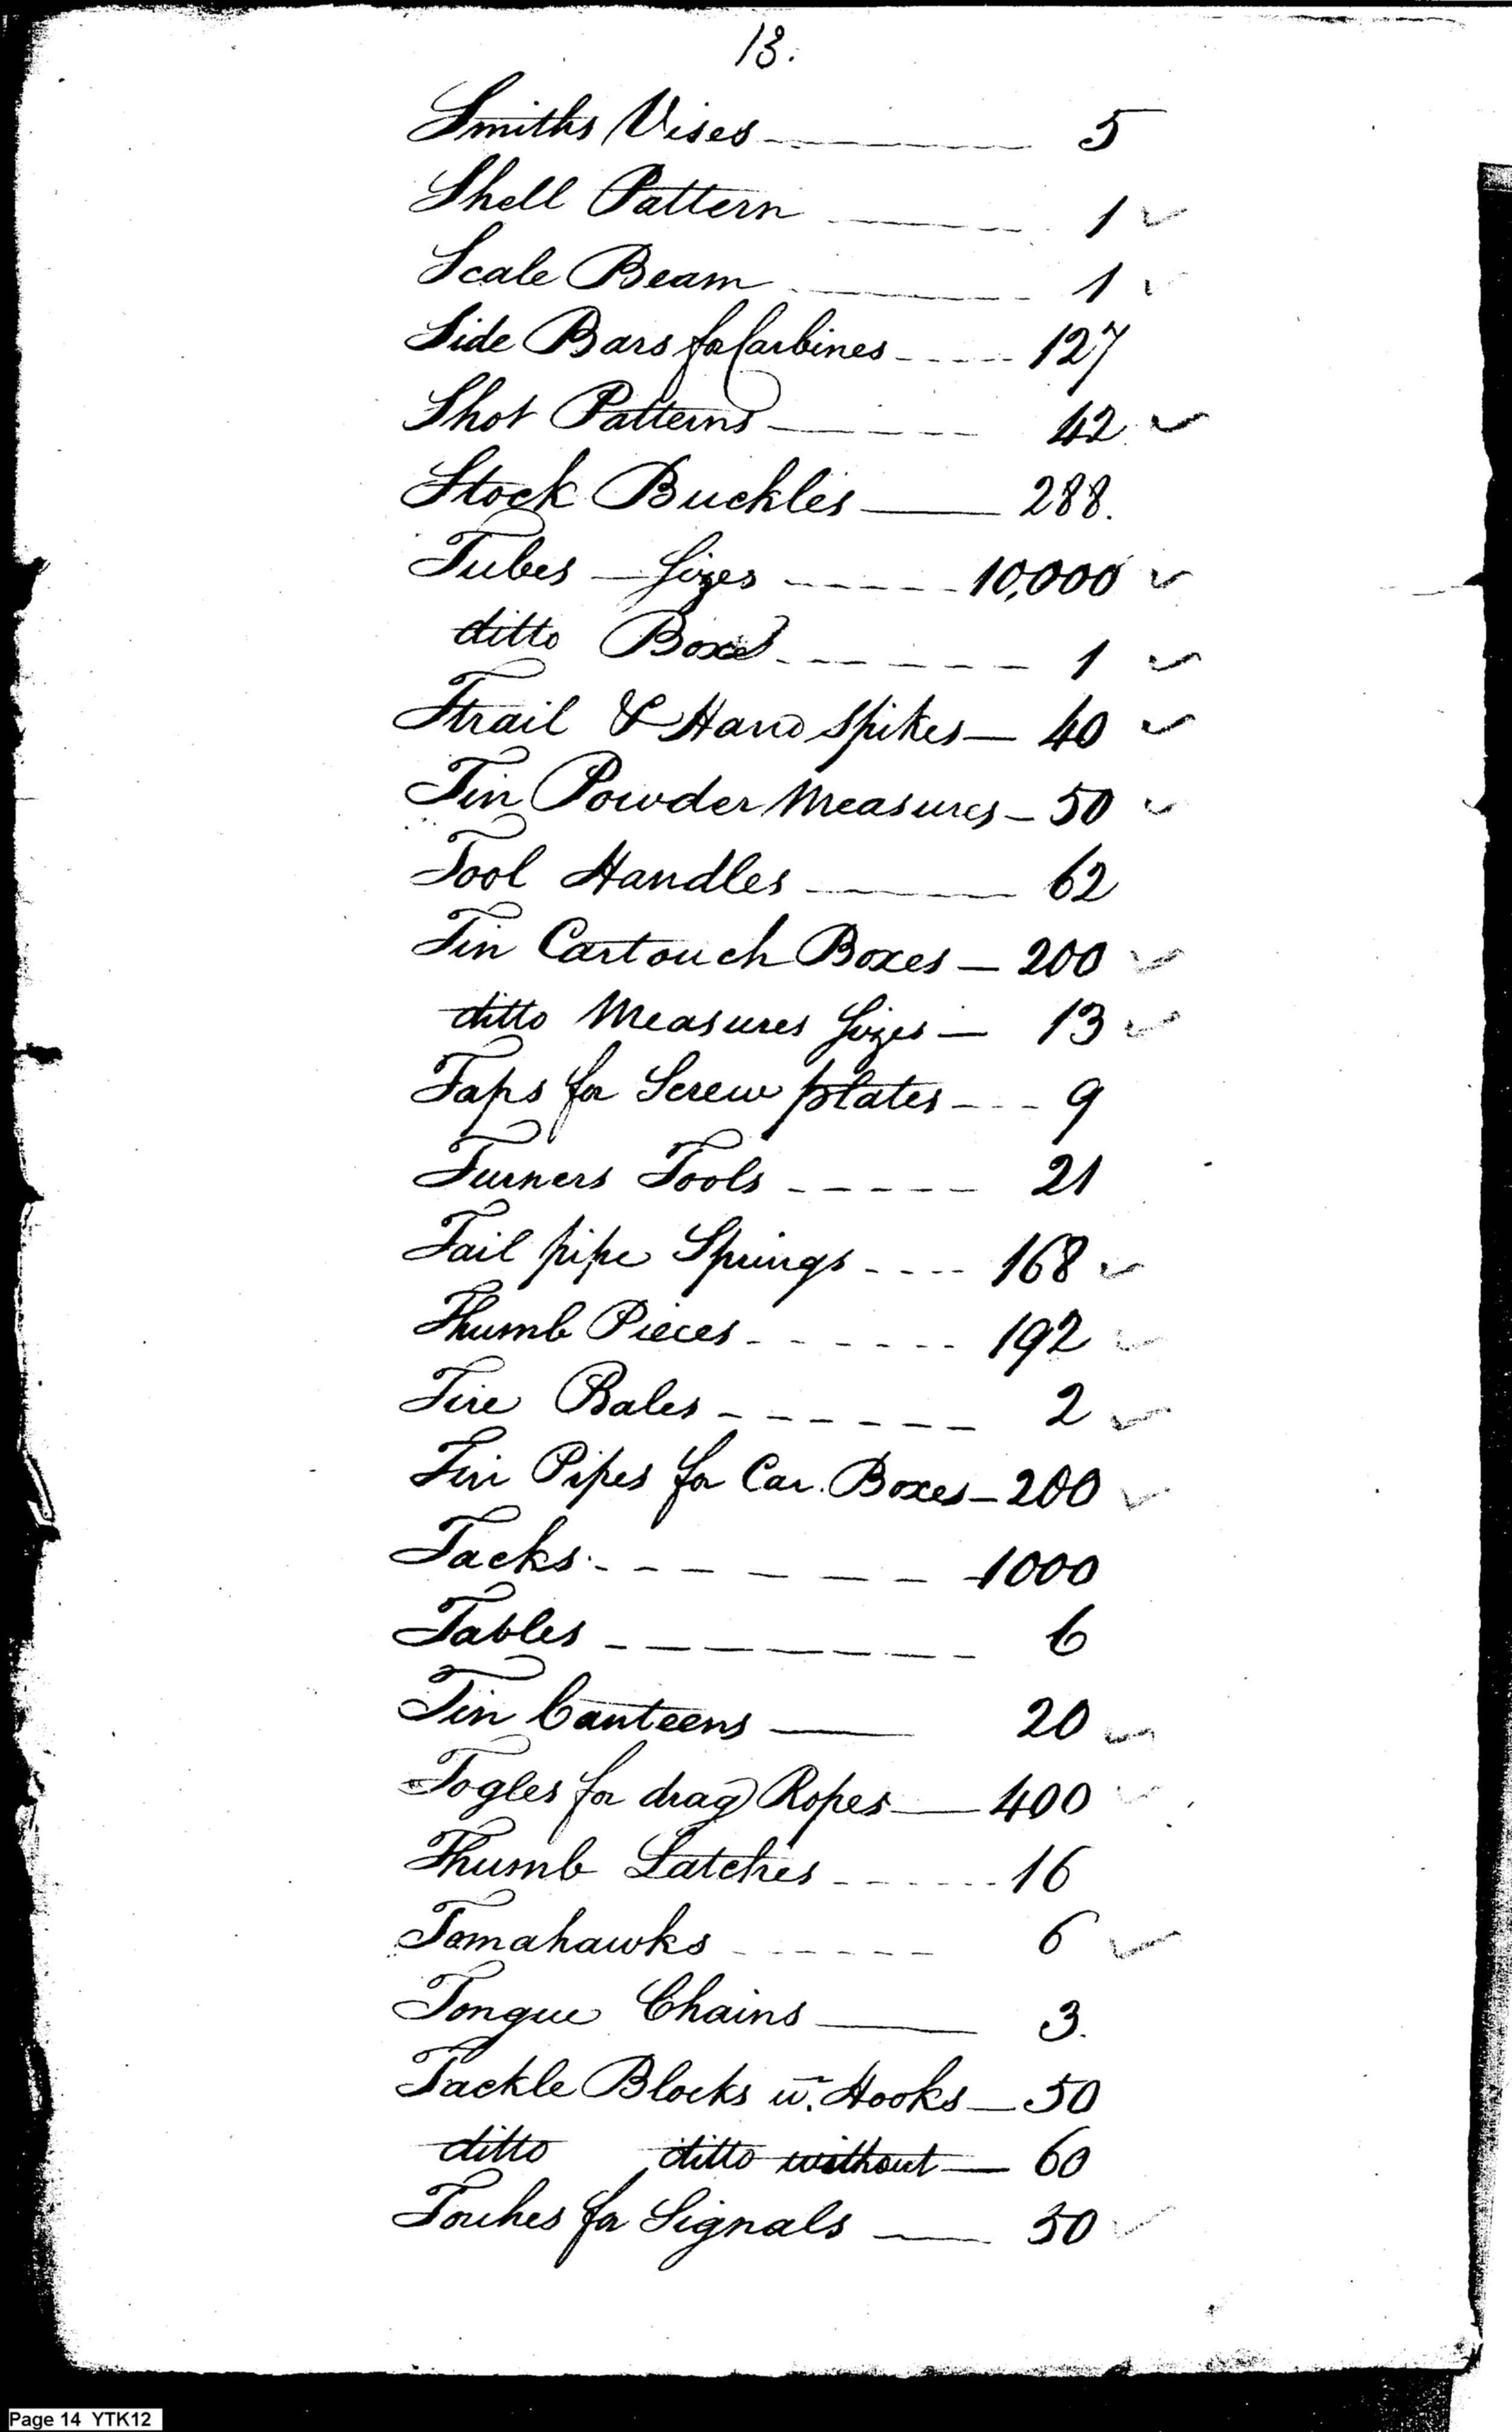 13.
Smiths Vises 5
Shell Pattern 1 ✓
Scale Beam 1 ✓
Side Bars for Carbines 127
Shot Patterns 42 ✓
Stock Buckles 288.
Tubes — Sizes 10,000 ✓
ditto Box 1 ✓
Trail & Hand Spikes — 40 ✓
Tin Powder Measures — 50 ✓
Tool Handles 62
Tin Cartouch Boxes — 200 ✓
ditto Measures Sizes — 13 ✓
Taps for Screw plates 9
Turners Tools 21
Tail pipe Springs 168 ✓
Thumb Pieces 192 ✓
Tire Bales 2 ✓
Tin Pipes for Car. Boxes — 200 ✓
Tacks 1000
Tables 6
Tin Canteens 20 ✓
Togles for drag Ropes — 400 ✓
Thumb Latches 16
Tomahawks 6 ✓
Tongue Chains 3.
Tackle Blocks w. Hooks — 50
ditto ditto without — 60
Touches for Signals — 50 ✓
Page 14 YTK12